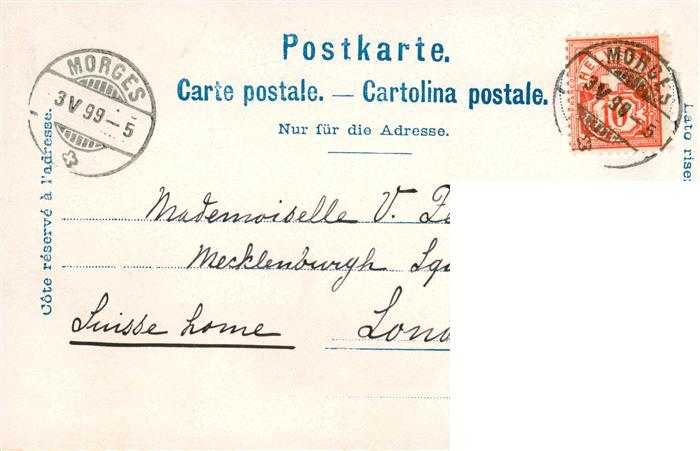 Postkarte.
Carte postale. — Cartolina postale.
Nur für die Adresse.
MORGES
3 V 99 – 5
MORGES
3 V 99 – 5
HEL
10
Côte réservé à l'adresse.
Lato rise
Mademoiselle V.
Mecklenburgh Squ
Suisse home
Lond